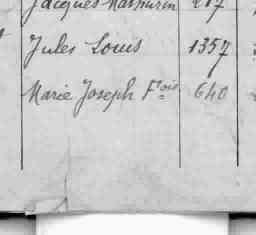 Jacques Mathurin 217
Jules Louis 1357
Marie Joseph Fçois 640